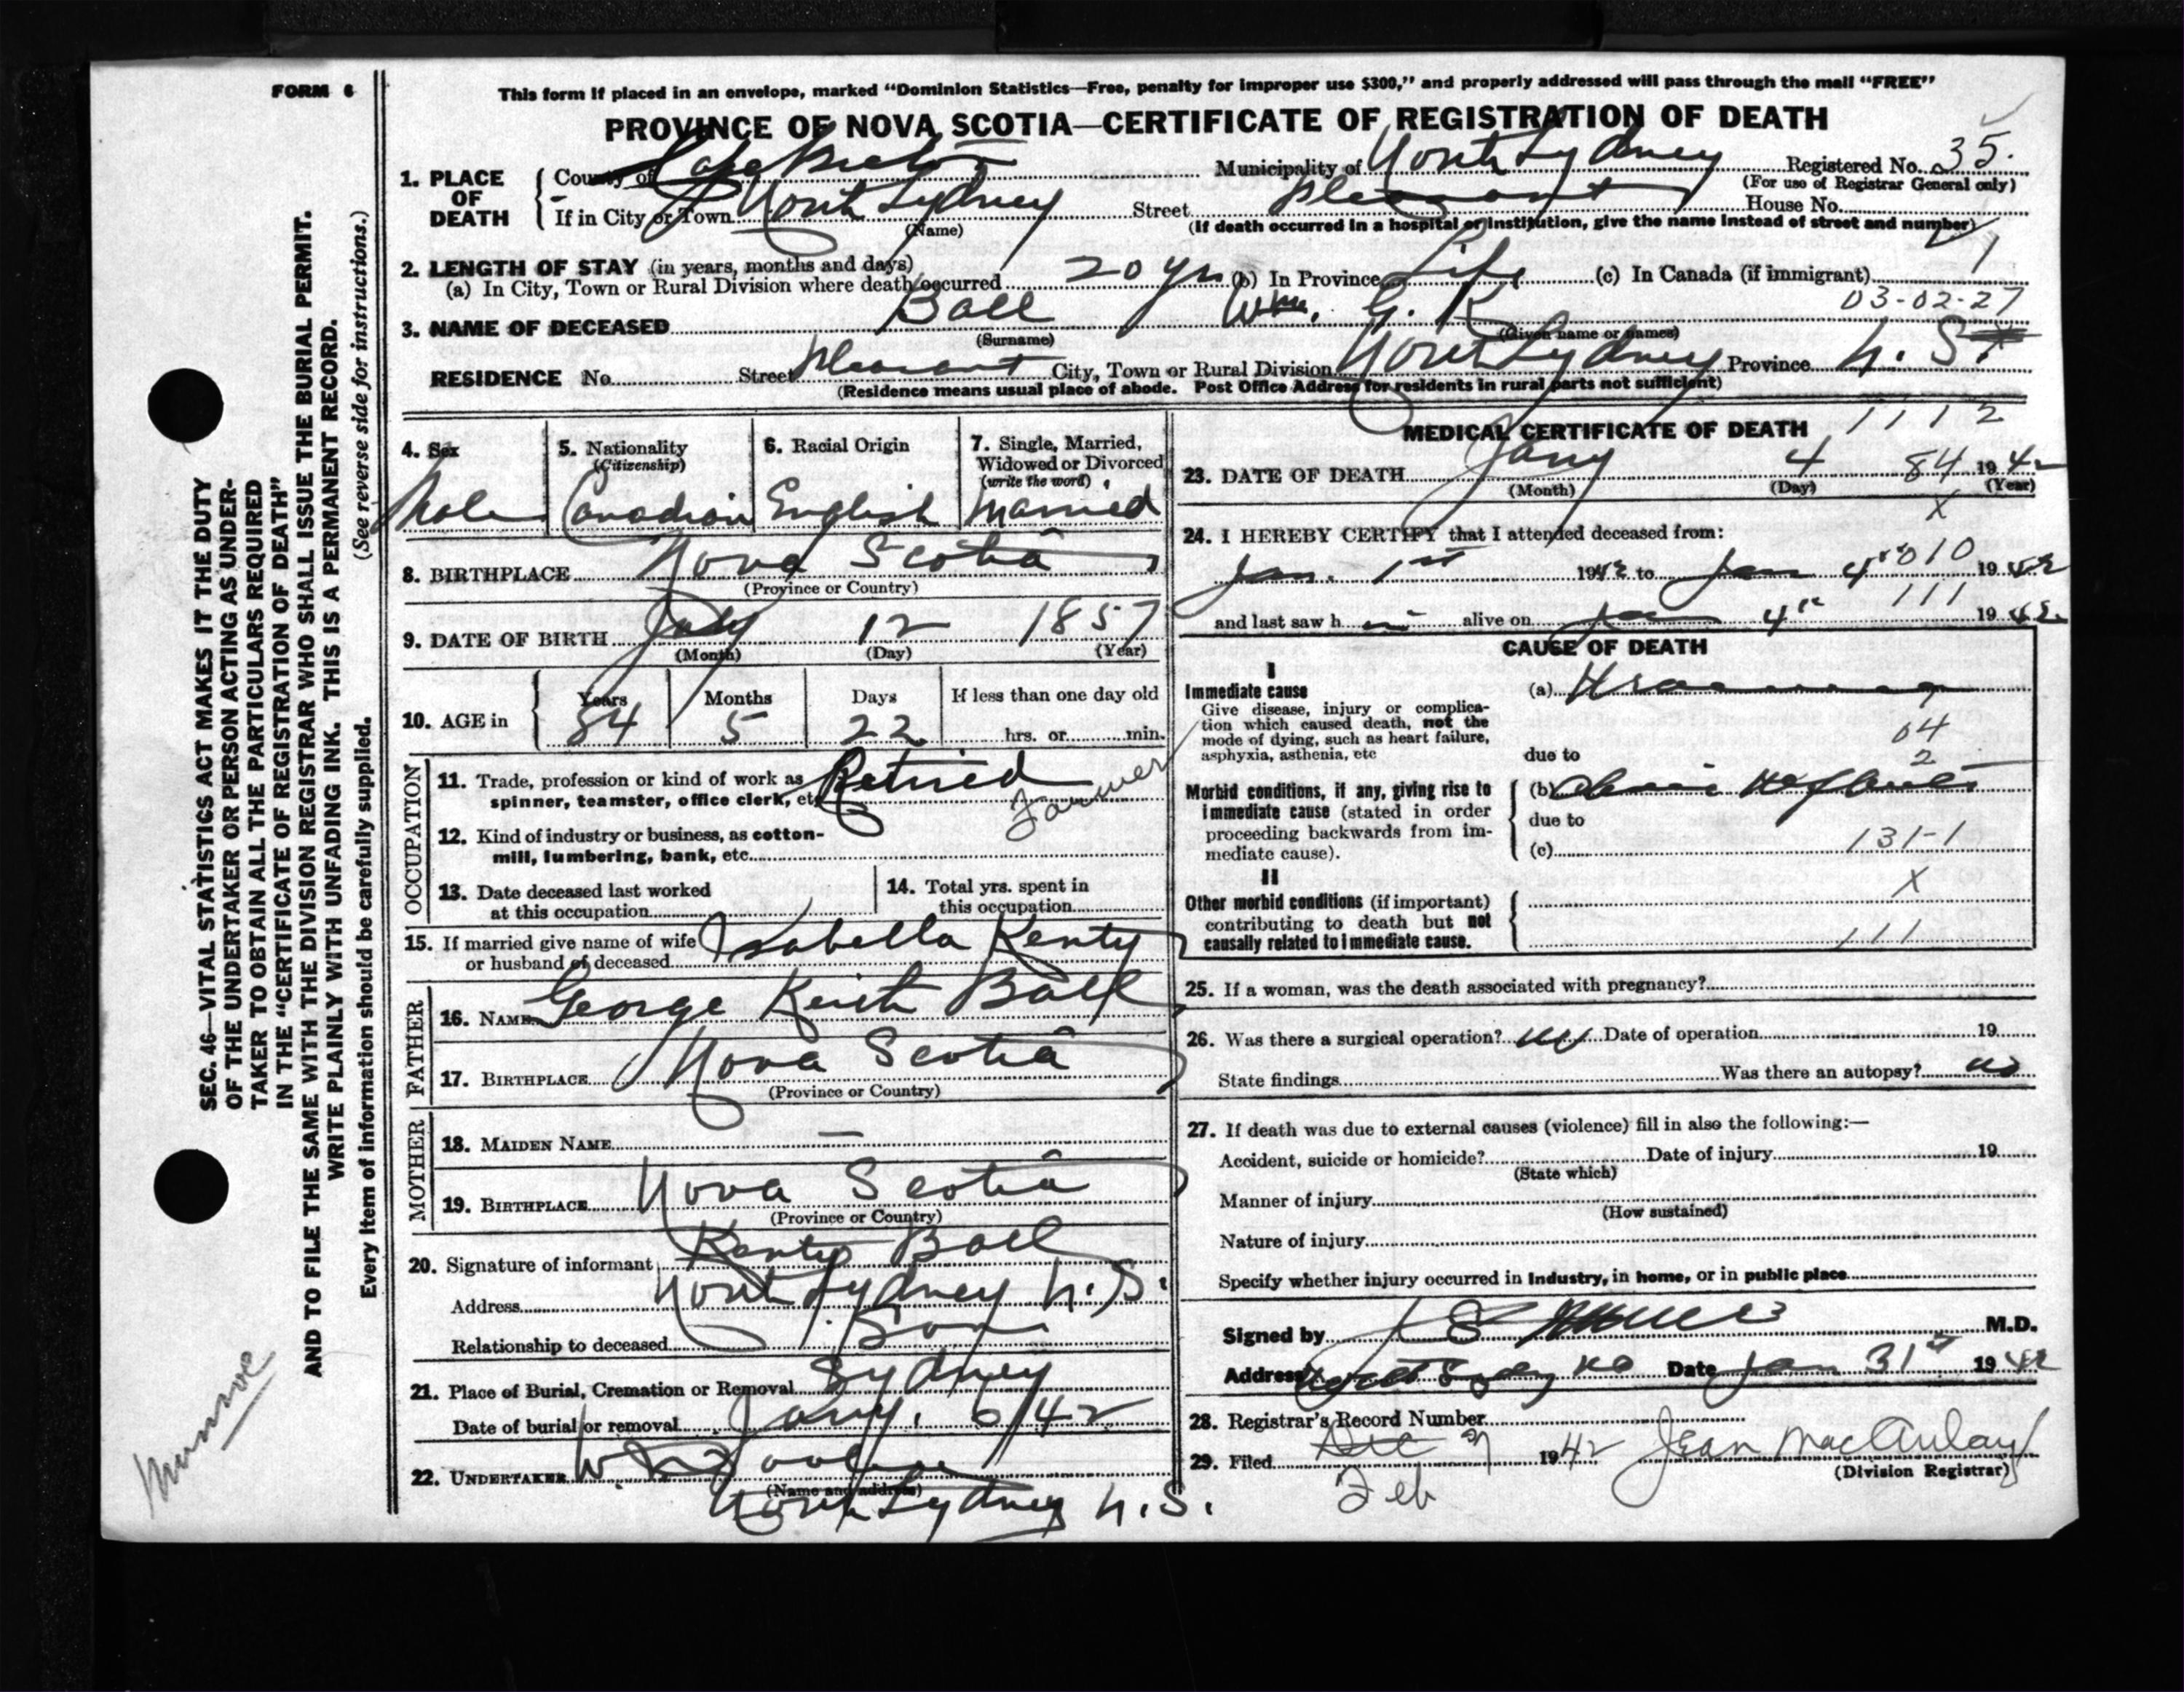 FORM 6
This form if placed in an envelope, marked “Dominion Statistics—Free, penalty for improper use $300,” and properly addressed will pass through the mail “FREE”
PROVINCE OF NOVA SCOTIA—CERTIFICATE OF REGISTRATION OF DEATH
1. PLACE OF DEATH
County of Cape Breton Municipality of North Sydney Registered No. 35.
(For use of Registrar General only)
If in City or Town North Sydney Street Pleasant House No.
(Name) (If death occurred in a hospital or institution, give the name instead of street and number)
1
2. LENGTH OF STAY (in years, months and days)
(a) In City, Town or Rural Division where death occurred 20 yrs (b) In Province Life (c) In Canada (if immigrant)
03-02-27
3. NAME OF DECEASED Ball Wm. G. K
(Surname) (Given name or names)
RESIDENCE No. Street Pleasant City, Town or Rural Division North Sydney Province N. S.
(Residence means usual place of abode. Post Office Address for residents in rural parts not sufficient)
4. Sex
Male
5. Nationality
(Citizenship)
Canadian
6. Racial Origin
English
7. Single, Married,
Widowed or Divorced
(write the word)
Married
8. BIRTHPLACE Nova Scotia
(Province or Country)
9. DATE OF BIRTH July 12 1857
(Month) (Day) (Year)
10. AGE in
Years Months Days If less than one day old
84 5 22 hrs. or min.
OCCUPATION
11. Trade, profession or kind of work as
spinner, teamster, office clerk, etc. Retired
Farmer
12. Kind of industry or business, as cotton-
mill, lumbering, bank, etc.
13. Date deceased last worked
at this occupation
14. Total yrs. spent in
this occupation
15. If married give name of wife
or husband of deceased Isabella Renty
FATHER
16. NAME George Keith Ball
17. BIRTHPLACE Nova Scotia
(Province or Country)
MOTHER
18. MAIDEN NAME —
19. BIRTHPLACE Nova Scotia
(Province or Country)
20. Signature of informant Renty Ball
Address North Sydney N.S.
Relationship to deceased Son
21. Place of Burial, Cremation or Removal Sydney
Date of burial or removal Jany. 6/42
22. UNDERTAKER
(Name and address)
North Sydney N.S.
MEDICAL CERTIFICATE OF DEATH 1112
23. DATE OF DEATH Jany 4 84 1942
(Month) (Day) (Year)
X
24. I HEREBY CERTIFY that I attended deceased from:
Jan. 1st 1942 to Jan 4th 010 1942
111
and last saw h im alive on Jan 4th 1942
CAUSE OF DEATH
I
Immediate cause
Give disease, injury or complica-
tion which caused death, not the
mode of dying, such as heart failure,
asphyxia, asthenia, etc
(a)
04
due to 2
Morbid conditions, if any, giving rise to
immediate cause (stated in order
proceeding backwards from im-
mediate cause).
(b)
due to
(c) 131-1
II
X
Other morbid conditions (if important)
contributing to death but not
causally related to immediate cause.
111
25. If a woman, was the death associated with pregnancy?
26. Was there a surgical operation? no Date of operation 19
State findings Was there an autopsy? no
27. If death was due to external causes (violence) fill in also the following:—
Accident, suicide or homicide? Date of injury 19
(State which)
Manner of injury
(How sustained)
Nature of injury
Specify whether injury occurred in industry, in home, or in public place
Signed by M.D.
Address North Sydney NS Date Jan 31st 1942
28. Registrar's Record Number
29. Filed Dec 27 1942 Jean MacAulay
Feb
(Division Registrar)
SEC. 46—VITAL STATISTICS ACT MAKES IT THE DUTY
OF THE UNDERTAKER OR PERSON ACTING AS UNDER-
TAKER TO OBTAIN ALL THE PARTICULARS REQUIRED
IN THE “CERTIFICATE OF REGISTRATION OF DEATH”
AND TO FILE THE SAME WITH THE DIVISION REGISTRAR WHO SHALL ISSUE THE BURIAL PERMIT.
WRITE PLAINLY WITH UNFADING INK. THIS IS A PERMANENT RECORD.
Every item of information should be carefully supplied. (See reverse side for instructions.)
Munroe